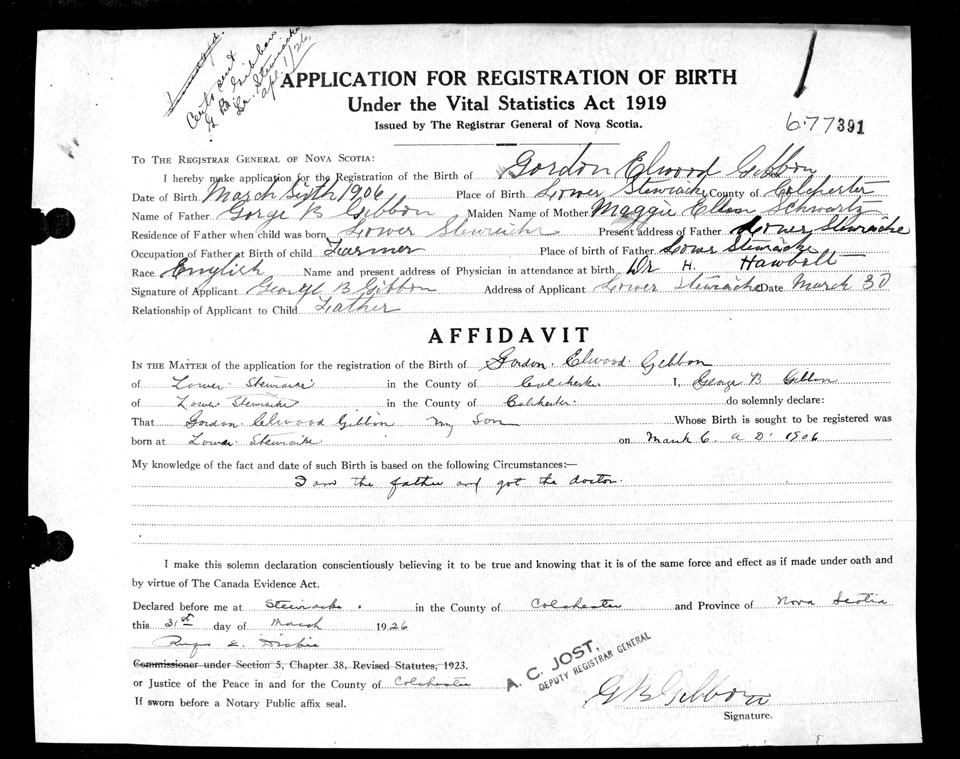 Certs sent
G. B. Gibbon
Lr. Stewiacke
Apl 1/26.
APPLICATION FOR REGISTRATION OF BIRTH
Under the Vital Statistics Act 1919
Issued by The Registrar General of Nova Scotia.
677391
TO THE REGISTRAR GENERAL OF NOVA SCOTIA:
I hereby make application for the Registration of the Birth of Gordon Elwood Gibbon
Date of Birth March Sixth 1906 Place of Birth Lower Stewiacke County of Colchester
Name of Father Gorge B Gibbon Maiden Name of Mother Maggie Ellen Schwartz
Residence of Father when child was born, Lower Stewiacke Present address of Father Lower Stewiacke
Occupation of Father at Birth of child Farmer Place of birth of Father Lower Stewiacke
Race English Name and present address of Physician in attendance at birth Dr H. Hawbolt
Signature of Applicant George B Gibbon Address of Applicant Lower Stewiacke Date March 30
Relationship of Applicant to Child Father
AFFIDAVIT
IN THE MATTER of the application for the registration of the Birth of Gordon Elwood Gibbon
of Lower Stewiacke in the County of Colchester I, George B Gibbon
of Lower Stewiacke in the County of Colchester do solemnly declare:
That Gordon Elwood Gibbon My Son Whose Birth is sought to be registered was
born at Lower Stewiacke on March 6. A D. 1906
My knowledge of the fact and date of such Birth is based on the following Circumstances:—
I am the father and got the doctor.
I make this solemn declaration conscientiously believing it to be true and knowing that it is of the same force and effect as if made under oath and
by virtue of The Canada Evidence Act.
Declared before me at Stewiacke. in the County of Colchester and Province of Nova Scotia
this 31st day of March 1926
Rufus E. Dickie
Commissioner under Section 5, Chapter 38, Revised Statutes, 1923.
or Justice of the Peace in and for the County of Colchester
If sworn before a Notary Public affix seal.
A. C. JOST,
DEPUTY REGISTRAR GENERAL
G B Gibbon
Signature.